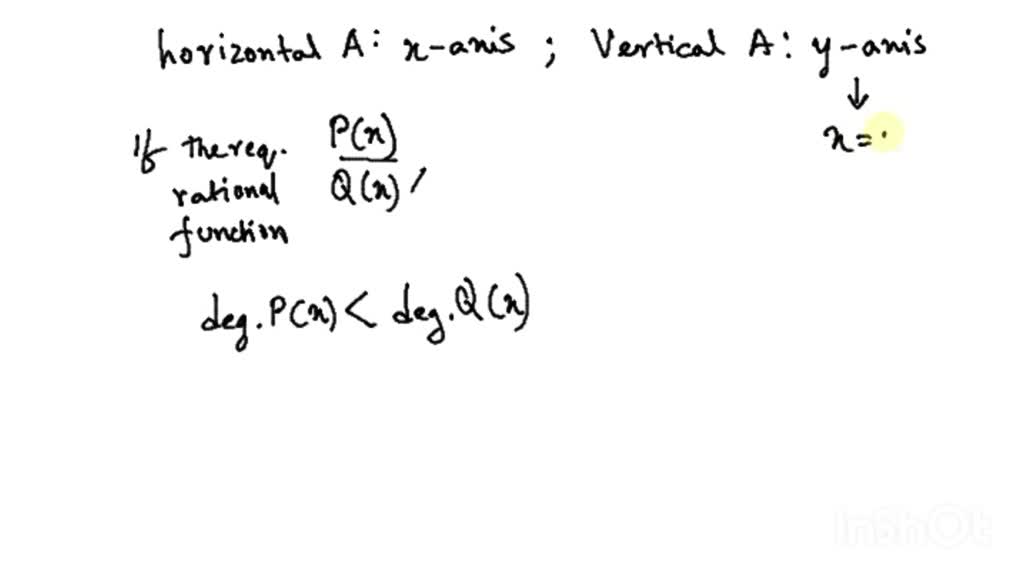 horizontal A: x-axis ; Vertical A: y-axis
↓
x=
If the req. P(x)
rational Q(x) ,
function
deg. P(x) < deg. Q(x)
InShOt